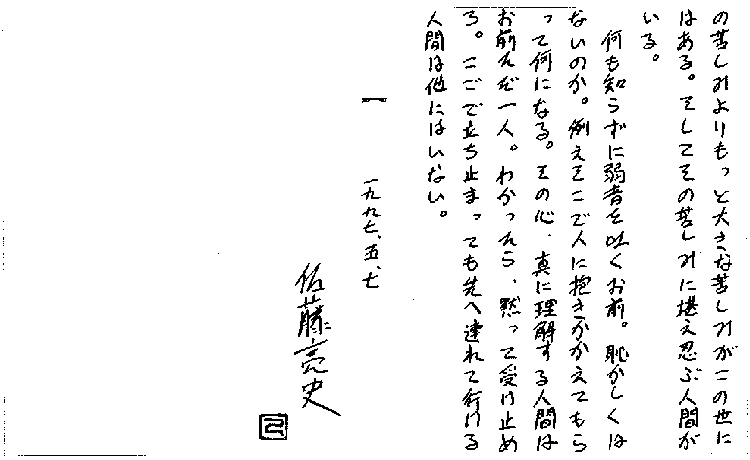 の苦しみよりもっと大きな苦しみがこの世に
はある。そしてその苦しみに堪え忍ぶ人間が
いる。
何も知らずに弱音を吐くお前。恥かしくは
ないのか。例えそこで人に抱きかかえてもら
って何になる。その心、真に理解する人間は
お前ただ一人。わかったら、黙って受け止め
ろ。ここで立ち止まっても先へ連れて行ける
人間は他にはいない。
一九九七、五、七
佐藤亮史